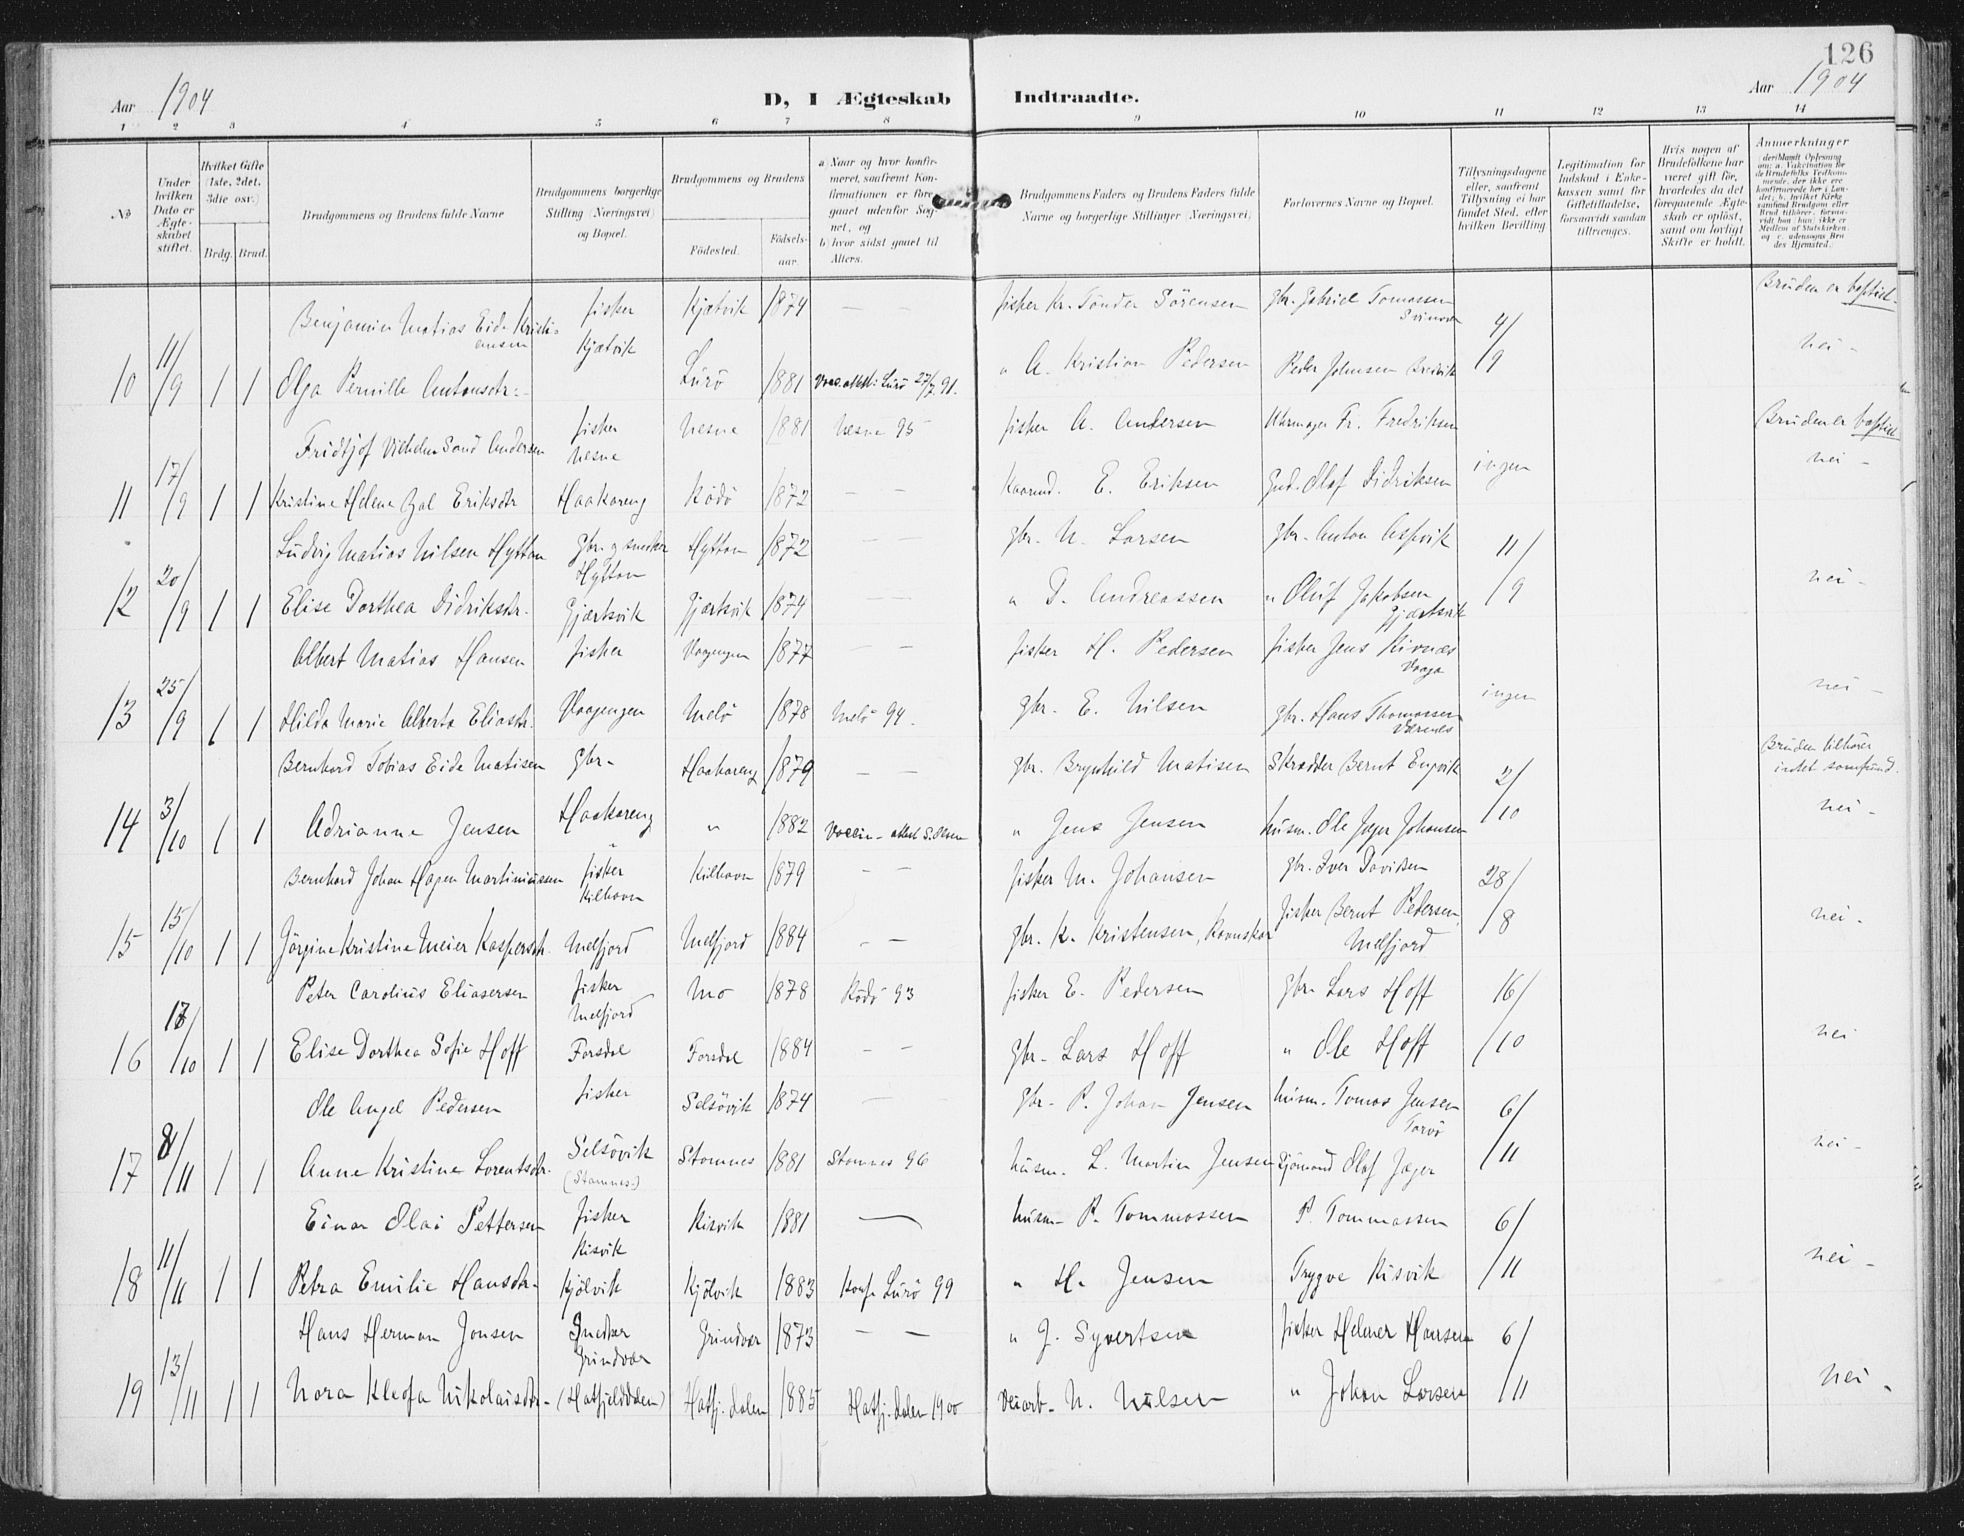 126
Aar 1904
D, I Ægteskab Indtraadte.
Aar 1904
1 2 3 4 5 6 7 8 9 10 11 12 13 14
No
Under hvilken Dato er Ægteskabet stiftet.
Hvilket Gifte (1ste, 2det, 3die osv.)
Brdg. Brud.
Brudgommens og Brudens fulde Navne
Brudgommens borgerlige Stilling (Næringsvei) og Bopæl.
Brudgommens og Brudens
Födested. Födselsaar.
a Naar og hvor konfirmeret, saafremt Konfirmationen er foregaaet udenfor Sognet, og
b) hvor sidst gaaet til Alters.
Brudgommens Faders og Brudens Faders fulde Navne og borgerlige Stillinger (Næringsvei)
Forlovernes Navne og Bopæl.
Tillysningsdagene eller, saafremt Tillysning ei har fundet Sted, efter hvilken Bevilling
Legitimation for Indskud i Enkekassen samt for Giftetilladelse, forsaavidt saadan tiltrænges.
Hvis nogen af Brudefolkene har været gift før, hvorledes da det foregaaende Ægteskab er opløst, samt om lovligt Skifte er holdt.
Anmerkninger
Benjamin Matias Eide Kristiansen fisker Kjatvik 1874 — — fisker Kr. Tönder Sörensen gbr. Gabriel Tomassen Bruden er baptist.
Kjatvik 4/9 nei -
10 11/9 1 1 Olga Pernille Antonsdtr. Lurö 1881 Vacc.attst: Lurö 27/7 91. " A. Kristian Pedersen Peder Johnsen Breivik
Fridtjof Vilhelm Sand Andersen fisker Nesne Nesne 1881 Nesne 95 fisker A. Andersen Uhrmager Fr. Fredriksen ingen Bruden er baptist
nei -
11 17/9 1 1 Kristine Helene Zal Eriksdtr Haakoreng Rödö 1872 — — E. Eriksen Olaf Didriksen
Ludvig Matias Nilsen Hyttan gbr. og snedker Hyttan Hyttan 1872 gbr. N. Larsen gbr. Anton Aspvik 11/9
12 20/9 1 1 Elise Dorthea Didriksdtr. Gjærtsvik Gjærtsvik 1874 — — " D. Andreassen " Oluf Jakobsen Gjærtsvik nei -
Albert Matias Hansen fisker Vaagengen 1877 — — fisker H. Pedersen fisker Jens Kivnæs Vaaga ingen
13 25/9 1 1 Hilda Marie Alberta Eliasdtr. Vaagengen Melö 1878 Melö 94. gbr. E. Nilsen gbr. Hans Thomassen Værnes nei -
Bernhard Tobias Eide Matisen gbr. Haakoreng 1879 — — gbr. Brynhild Matisen Skrædder Bernt Engvik 2/10 Bruden tilhører intet samfund.
14 3/10 1 1 Adrianne Jensen Haakoreng " 1882 Vaccin-attest S. Olsen " Jens Jensen husm. Ole Jager Johansen nei -
Bernhard Johan Hagen Martiniussen fisker Kilhavn Kilhavn 1879 — — fisker M. Johansen gbr. Iver Davidsen 28/8
15 15/10 1 1 Jörgine Kristine Meier Kaspersdtr. Melfjord Melfjord 1884 — gbr. K. Kristensen, Ravnskar fisker Bernt Pedersen, Melfjord nei -
Peter Carolius Eliasersen fisker Melfjord Mo 1878 Rödö 93 fisker E. Pedersen gbr. Lars Hoff 16/10
16 17/10 1 1 Elise Dorthea Sofie Hoff Forsdal Forsdal 1884 — — gbr. Lars Hoff " Ole Hoff nei
Ole Angel Pedersen fisker Selsövik 1874 — — gbr. P. Johan Jensen husm. Tomas Jensen Torvö 6/11
17 8/11 1 1 Anne Kristine Lorentsdtr. Selsövik (Stamnes) Stamnes 1881 Stamnes 96 husm. L. Martin Jensen Sjömand Olaf Jæger nei -
Einar Olai Pettersen fisker Kisvik Kisvik 1881 — husm. P. Tommassen P. Tommassen 6/11
18 11/11 1 1 Petra Emilie Hansdtr. Kjölvik Kjölvik 1883 Konf. Lurö 99 " H. Jensen Trygve Kisvik nei -
Hans Herman Jonsen Snedker Grindvær Grindvær 1873 — — " J. Syvertsen fisker Helmer Hansen 6/11
19 13/11 1 1 Nora Kleofa Nikolaisdtr. (Hatfjelddalen) Hatfj. dalen 1885 Hatfj. dalen 1900 Veiarb. N. Nilsen " Johan Larsen nei -